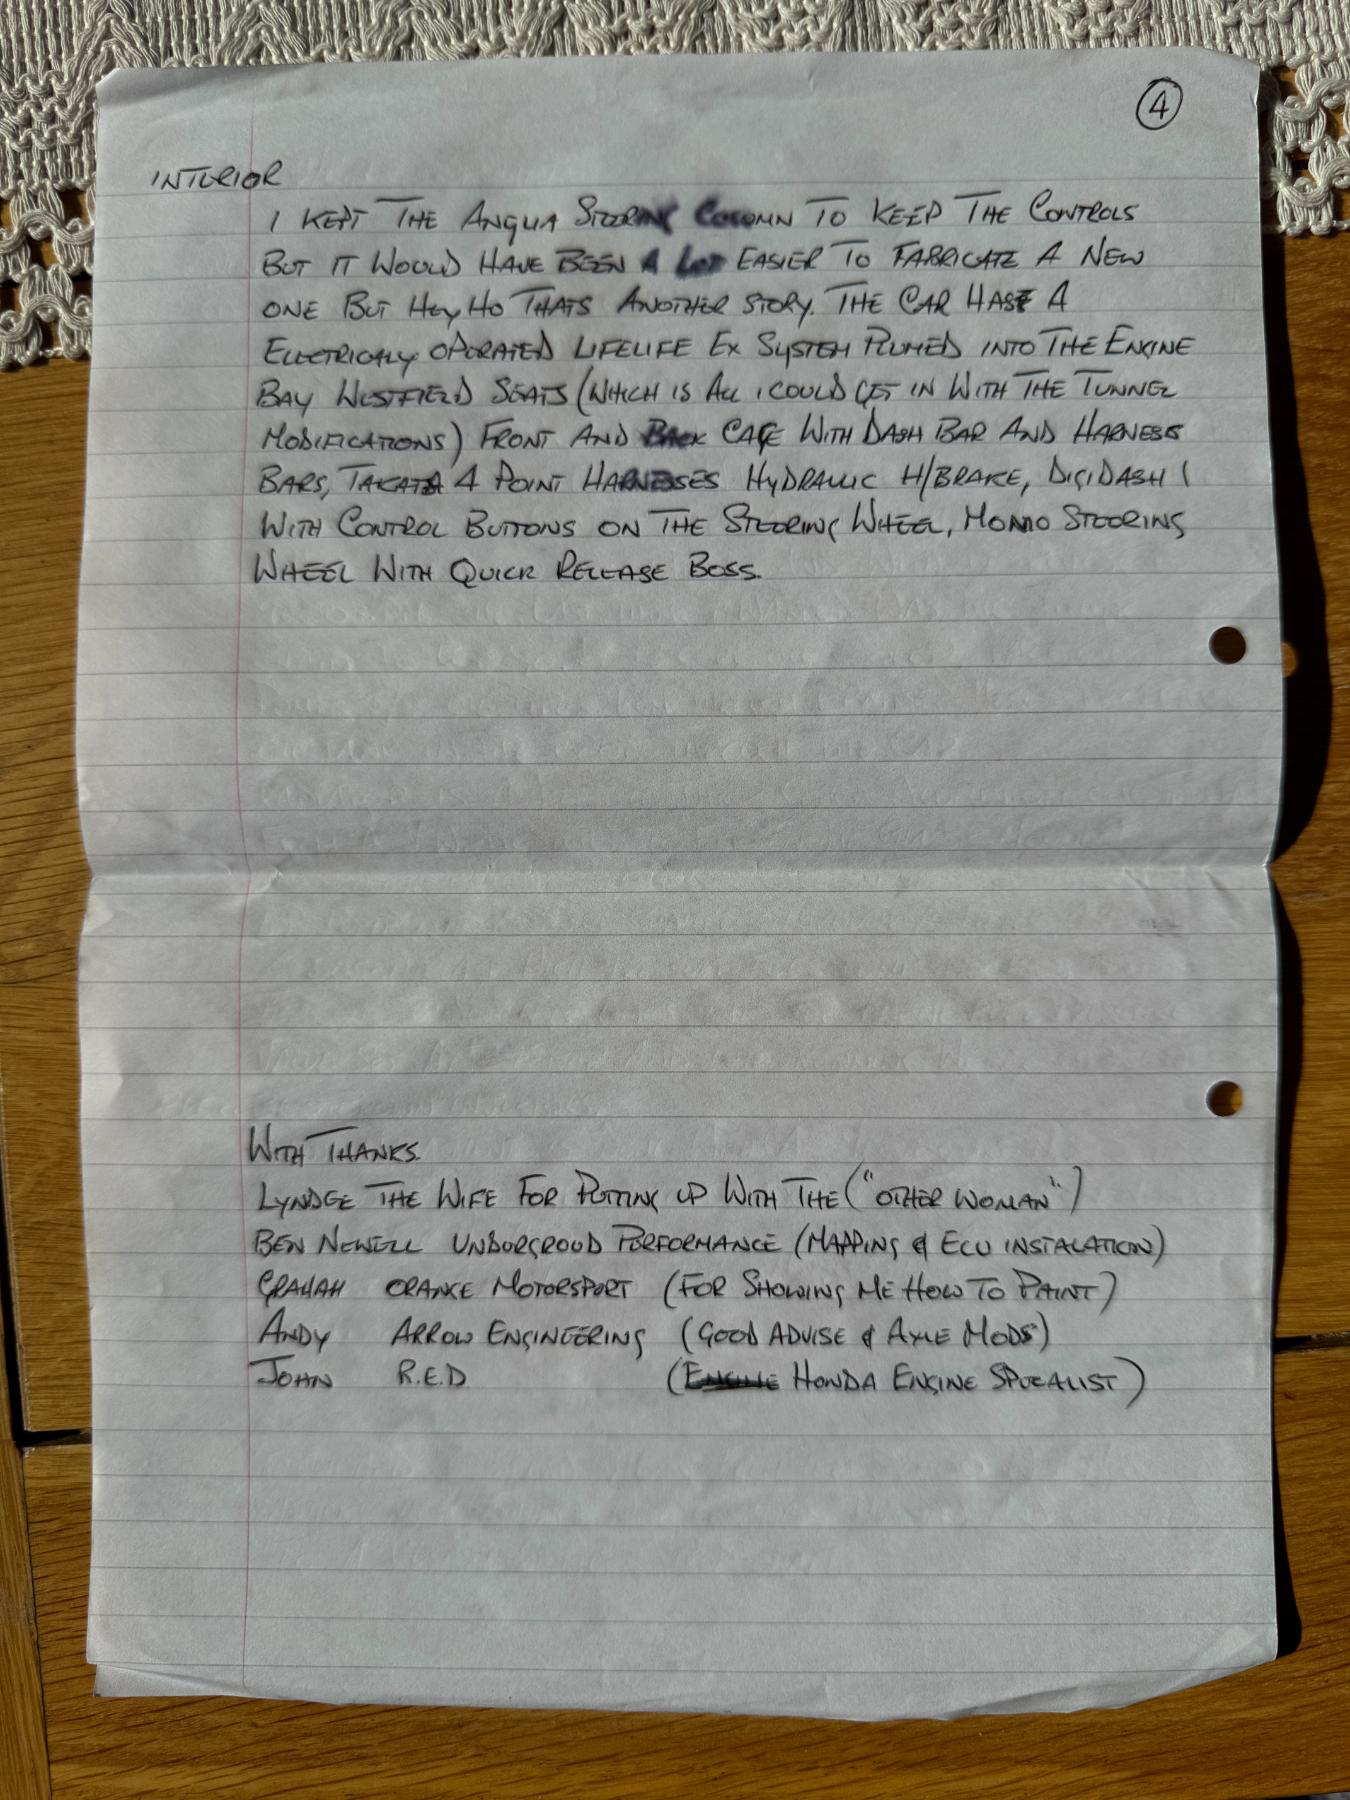 4
INTERIOR
I KEPT THE ANGLIA STEERING COLUMN TO KEEP THE CONTROLS
BUT IT WOULD HAVE BEEN A LOT EASIER TO FABRICATE A NEW
ONE BUT HEY HO THATS ANOTHER STORY. THE CAR HAS A
ELECTRICALY OPERATED LIFELIFE EX SYSTEM PLUMED INTO THE ENGINE
BAY WESTFIELD SEATS (WHICH IS ALL I COULD GET IN WITH THE TUNNEL
MODIFICATIONS) FRONT AND BACK CAGE WITH DASH BAR AND HARNESS
BARS, TAKATA 4 POINT HARNESSES HYDRAULIC H/BRAKE, DIGIDASH 1
WITH CONTROL BUTTONS ON THE STEERING WHEEL, MOMO STEERING
WHEEL WITH QUICK RELEASE BOSS.
WITH THANKS.
THE WIFE FOR PUTTING UP WITH THE ("OTHER WOMAN")
BEN NEWELL UNDERGROUD PERFORMANCE (MAPPING & ECU INSTALATION)
GRAHAM ORANGE MOTORSPORT (FOR SHOWING ME HOW TO PAINT)
ANDY ARROW ENGINEERING (GOOD ADVISE & AXLE MODS)
JOHN R.E.D (ENGINE HONDA ENGINE SPECALIST)